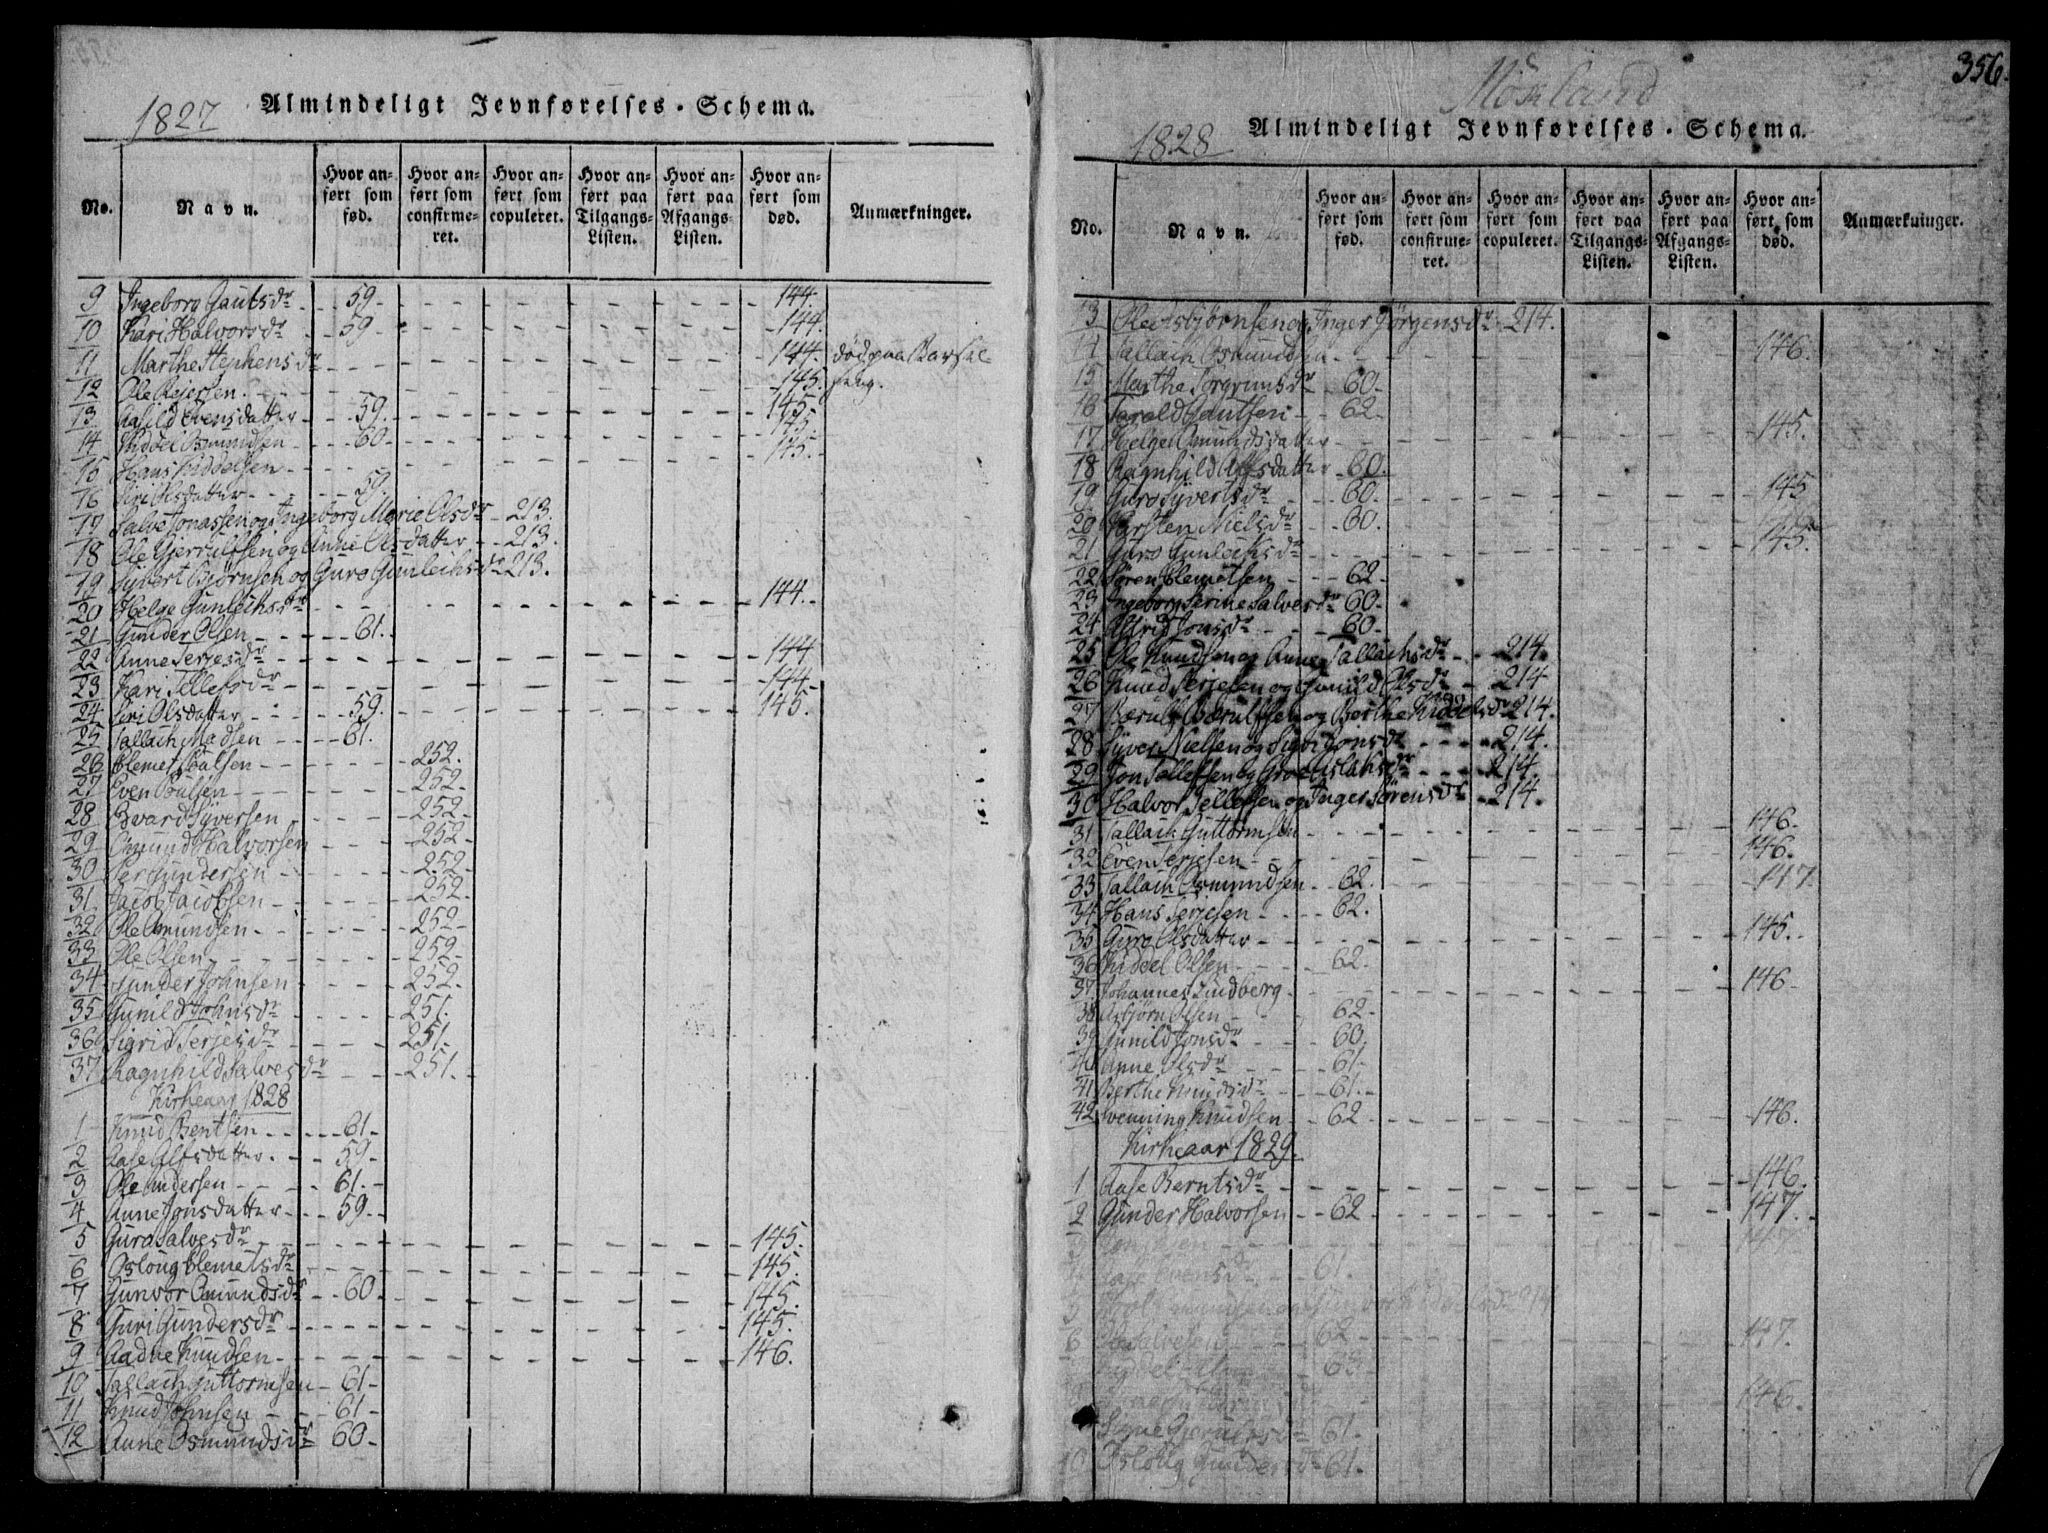 1827 Almindeligt Jevnførelses-Schema.
No. Navn. Hvor anført som fød. Hvor anført som confirmeret. Hvor anført som copuleret. Hvor anført paa Tilgangs-Listen. Hvor anført paa Afgangs-Listen. Hvor anført som død. Anmærkninger.
9 Ingeborg Gautsdr 59 144.
10 Kari Halvorsdr 59 144.
11 Marthe Stephensdr 144. død paa Barsel
12 Ole Reiersen 145. seng.
13 Aasild Evensdatter 59. 145.
14 Kiddel Osmundsen 60 145.
15 Hans Kiddelsen 145.
16 Siri Olsdatter 59
17 Salve Jonassen og Ingeborg Marie Olsdr 213.
18 Ole Gjerulfsen og Anne Olsdatter 213.
19 Syvert Bjørnsen og Guro Gunleichsdr 213.
20 Helge Gunleichsdr 144.
21 Gunder Olsen 61.
22 Anne Terjesdr 144
23 Kari Tellefsdr 144
24 Siri Olsdatter 59. 145.
25 Tallach Madsen 61.
26 Clemet Poulsen 252.
27 Even Poulsen 252.
28 Evard Syversen 252.
29 Omund Halvorsen 252
30 Per Gundersen 252
31 Jacob Jacobsen 252
32 Ole Omundsen 252
33 Ole Olsen 252
34 Gunder Johnsen 252.
35 Gunild Johnsdr 251.
36 Sigrid Terjesdr 251.
37 Ragnhild Salvesdr 251.
Kirkeaar 1828
1 Knud Bentsen 61
2 Aase Alfsdatter 59
3 Ole Andersen 61.
4 Anne Jonsdatter 59
5 Guro Salvesdr 145.
6 Osloug Clemetsdr 145.
7 Gunvor Omundsdr 60 145.
8 Guri Gundersdr 145.
9 Aadne Knudsen 146.
10 Tallach Guttormsen 61
11 Knud Johnsen 61
12 Anne Osmundsdr 60
356.
Mosland
1828 Almindeligt Jevnførelses-Schema.
No. Navn. Hvor anført som fød. Hvor anført som confirmeret. Hvor anført som copuleret. Hvor anført paa Tilgangs-Listen. Hvor anført paa Afgangs-Listen. Hvor anført som død. Anmærkninger.
13 Ole Asbjørnsen og Inger Jørgensdr 214.
14 Tallach Osmundsen 146.
15 Marthe Torgrimsdr 60
16 Tarald Gautsen 62
17 Helge Omundsdatter 145.
18 Ragnhild Alfsdatter 60.
19 Guro Syvertsdr 60. 145
20 Torsten Nielsdr 60.
21 Guro Gunleichsdr 145.
22 Søren Clemetsen 62
23 Ingeborg Serine Salvesdr 60
24 Astrid Jonsdr 60
25 Ole Knudsen og Anne Tallachsdr 214.
26 Knud Terjesen og Gunild Olsdr 214
27 Bærulf Bærulfsen og Berthe Kiddelsdr 214.
28 Syver Nielsen og Sigri Jonsdr 214.
29 Jon Tellefsen og Groe Aslaksdr 214
30 Halvor Tellefsen og Inger Sørensdr 214.
31 Tallach Guttormsen 146.
32 Even Terjesen 146.
33 Tallach Osmundsen 62. 147.
34 Hans Terjesen 62.
35 Guro Olsdatter 145.
36 Kiddel Olsen 62.
37 Johannes Lindberg 146
38 Asbjørn Olsen 62
39 Gunild Jonsdr 60.
40 Anne Olsdr 61
41 Berthe Knudsdr 61.
42 Svenning Knudsen 62 146.
Kirkeaar 1829.
1 Aase Berntsdr 146.
2 Gunder Halvorsen 62 147.
3 147
4 Aase Evensdr 61.
5 214
6 Salvesen 62 147.
63
146
Signe Gjerulfsdr 61.
10 Osloug Gundersdr 61.